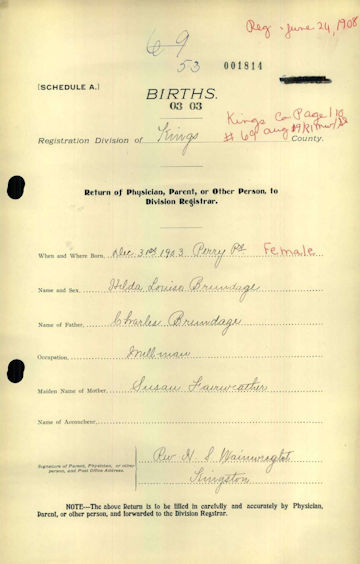 Reg. June 24, 1908
69
53
001814
[SCHEDULE A.]
BIRTHS.
03 03
Kings Co Page 110
# 69 Aug
Registration Division of Kings County.
Return of Physician, Parent, or Other Person, to
Division Registrar.
When and Where Born, Dec 31st 1903 Perry Pt Female
Name and Sex, Hilda Louisa Brundage
Name of Father, Charles Brundage
Occupation, Millman
Maiden Name of Mother, Susan Fairweather
Name of Accoucheur,
Signature of Parent, Physician, or other
person, and Post Office Address.
Rev H S Wainwright
Kingston
NOTE---The above Return is to be filled in carefully and accurately by Physician,
Parent, or other person, and forwarded to the Division Registrar.